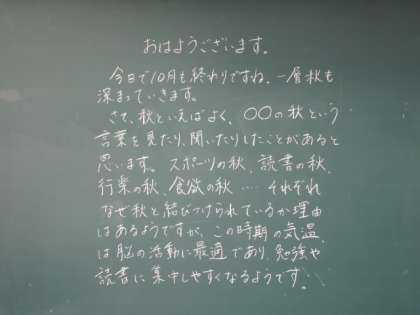 おはようございます。
今日で10月も終わりですね。一層秋も
深まっていきます。
さて、秋といえばよく、〇〇の秋という
言葉を見たり、聞いたりしたことがあると
思います。スポーツの秋、読書の秋、
行楽の秋、食欲の秋…. それぞれ
なぜ秋と結びつけられているか理由
はあるようですが、この時期の気温
は脳の活動に最適であり、勉強や
読書に集中しやすくなるようです。